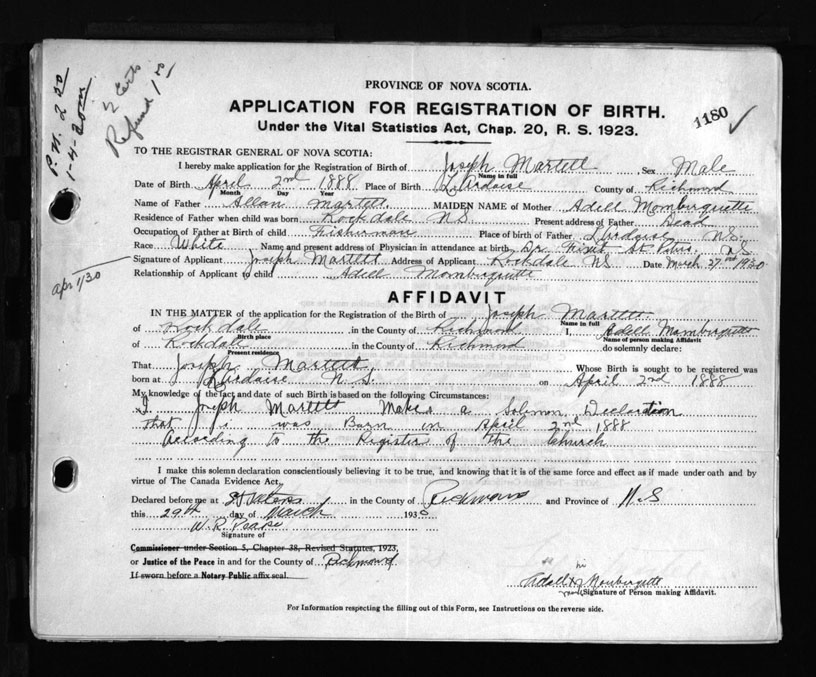 P.N. 2 20
1-4-30
2 Certs
Refund 1.00
PROVINCE OF NOVA SCOTIA.
APPLICATION FOR REGISTRATION OF BIRTH.
1180
Under the Vital Statistics Act, Chap. 20, R. S. 1923.
TO THE REGISTRAR GENERAL OF NOVA SCOTIA:
I hereby make application for the Registration of Birth of Joseph Martett Sex Male
Name in full
Date of Birth April 2nd 1888 Place of Birth L'Ardoise County of Richmond
Month Day Year
Name of Father Allan Martett MAIDEN NAME of Mother Adell Momburquette
Residence of Father when child was born Rockdale N S Present address of Father Dead
Occupation of Father at Birth of child Fisherman Place of birth of Father L'Ardoise N S
Race White Name and present address of Physician in attendance at birth Dr St Peters N S
Signature of Applicant Joseph Martett Address of Applicant Rockdale N S Date March 27 1930
Relationship of Applicant to child Adell Momburquette
apr 1/30
AFFIDAVIT
IN THE MATTER of the application for the Registration of the Birth of Joseph Martett
Name in full
of Rockdale in the County of Richmond I, Adell Momburquette
Birth place Name of person making Affidavit
of Rockdale in the County of Richmond do solemnly declare:
Present residence
That Joseph Martett Whose Birth is sought to be registered was
born at L'Ardoise N. S. on April 2nd 1888
My knowledge of the fact and date of such Birth is based on the following Circumstances:
I Joseph Martett Make a Solemn Declaration
that i was Born in April 2nd 1888
According to the Register of the Church
I make this solemn declaration conscientiously believing it to be true, and knowing that it is of the same force and effect as if made under oath and by
virtue of The Canada Evidence Act.
Declared before me at St Peters in the County of Richmond and Province of N. S
this 29th day of March 1930
W. R.
Signature of
Commissioner under Section 5, Chapter 38, Revised Statutes, 1923,
or Justice of the Peace in and for the County of Richmond
If sworn before a Notary Public affix seal.
Adell Momburquette
Signature of Person making Affidavit.
For Information respecting the filling out of this Form, see Instructions on the reverse side.